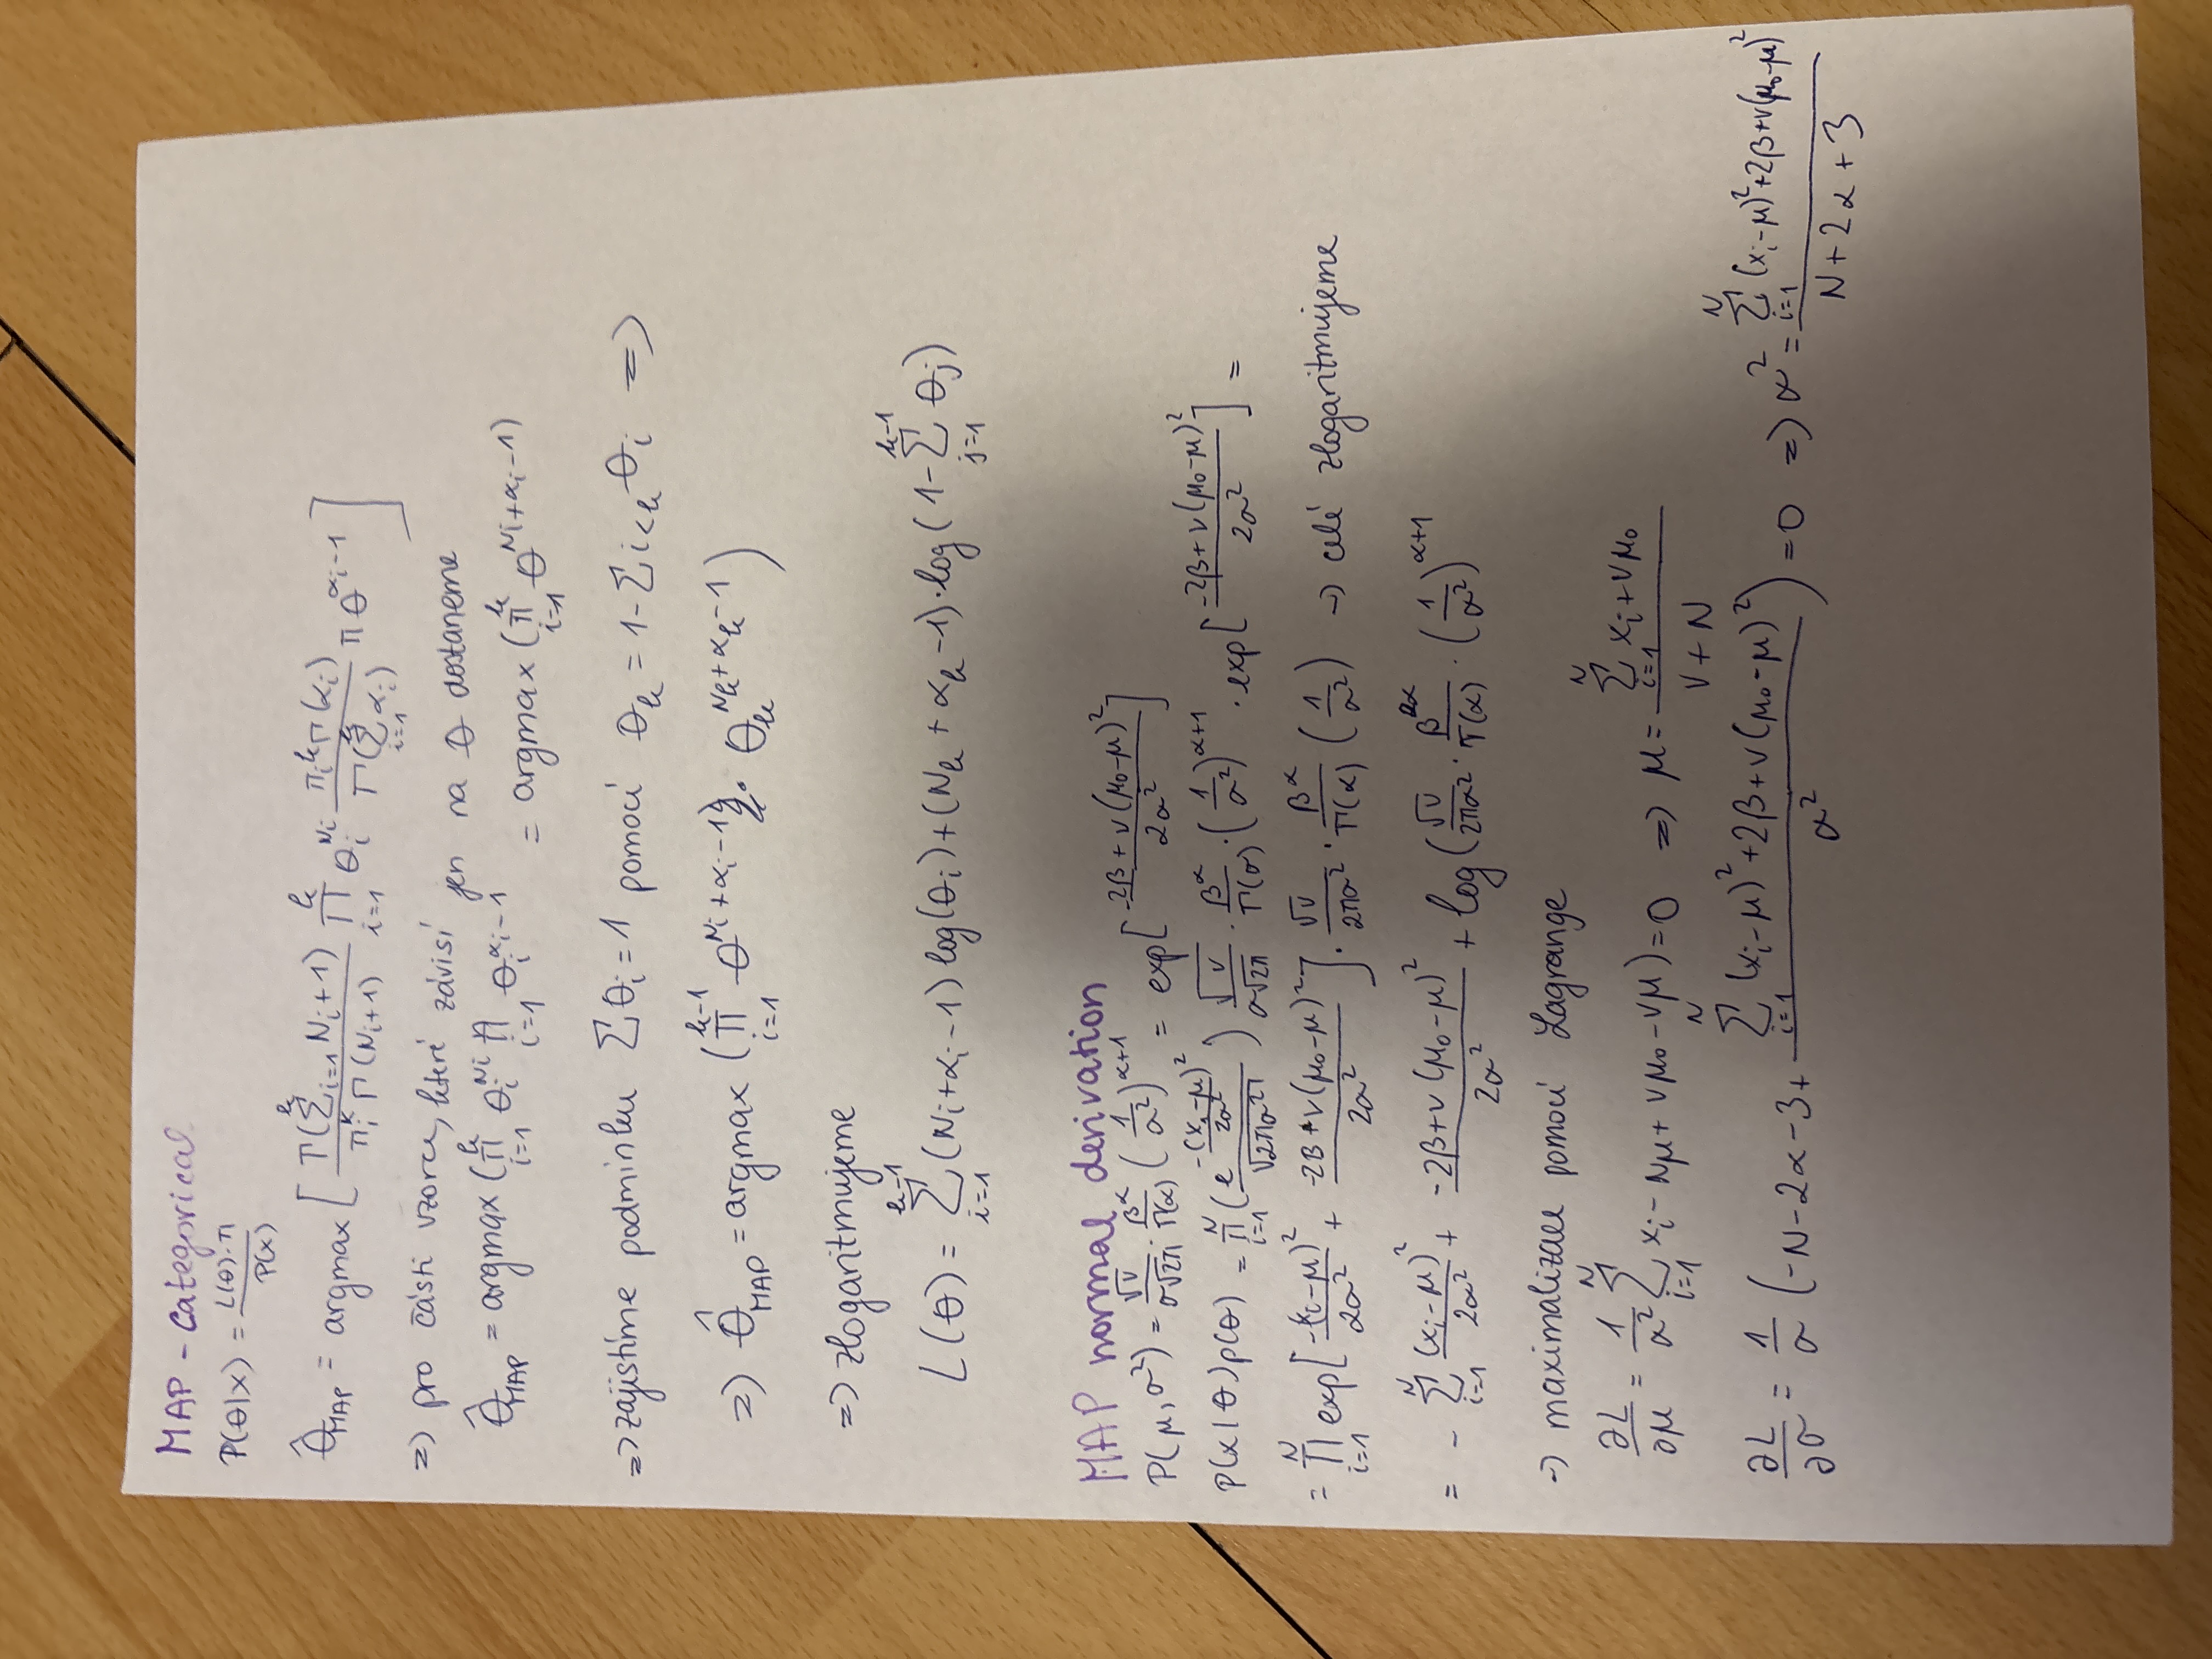 MAP - Categorical
P(θ|x) = L(θ)·π / P(x)
θ̂_MAP = argmax [ Γ(∑_{i=1}^k N_i+1) / π_i^k Γ(N_i+1) ∏_{i=1}^k θ_i^{N_i} π_i^k Γ(α_i) / Γ(∑_{i=1}^k α_i) π θ^{α_i-1} ]
=> pro části vzorce, které závisí jen na θ dostaneme
θ̂_MAP = argmax (∏_{i=1}^k θ_i^{N_i} ∏_{i=1} θ_i^{α_i-1} = argmax (∏_{i=1}^k θ^{N_i+α_i-1})
=> zajistíme podmínku ∑θ_i = 1 pomocí θ_k = 1 - ∑_{i<k} θ_i =>
=> θ̂_MAP = argmax (∏_{i=1}^{k-1} θ^{N_i+α_i-1} · θ_k^{N_k+α_k-1})
=> zlogaritmujeme
L(θ) = ∑_{i=1}^{k-1} (N_i+α_i-1) log(θ_i) + (N_k + α_k -1)·log(1-∑_{j=1}^{k-1} θ_j)
MAP normal derivation
P(μ, σ²) = √ν / σ√2π · β^α / Γ(α) (1/σ²)^{α+1} = exp[ -2β+ν(μ₀-μ)² / 2σ² ]
P(x|θ)p(θ) = ∏_{i=1}^N ( e^{-(x_i-μ)²/2σ²} / √2πσ² ) √ν / σ√2π · β^α / Γ(α) · (1/σ²)^{α+1} · exp[ -2β+ν(μ₀-μ)² / 2σ² ] =
= ∏_{i=1}^N exp[ -(x_i-μ)² / 2σ² + -2β+ν(μ₀-μ)² / 2σ² ] · √ν / 2πσ² · β^α / Γ(α) (1/σ²) → celé zlogaritmujeme
= - ∑_{i=1}^N (x_i-μ)² / 2σ² + -2β+ν(μ₀-μ)² / 2σ² + log( √ν / 2πσ² · β^α / Γ(α) · (1/σ²)^{α+1}
→ maximalizace pomocí Lagrange
∂L/∂μ = 1/σ² ∑_{i=1}^N x_i - Nμ + νμ₀ - νμ) = 0 => μ = ∑_{i=1}^N x_i + νμ₀ / ν + N
∂L/∂σ = 1/σ (-N-2α-3+ ∑_{i=1}^N (x_i-μ)²+2β+ν(μ₀-μ)² / σ² ) = 0 => σ² = ∑_{i=1}^N (x_i-μ)²+2β+ν(μ₀-μ)² / N+2α+3